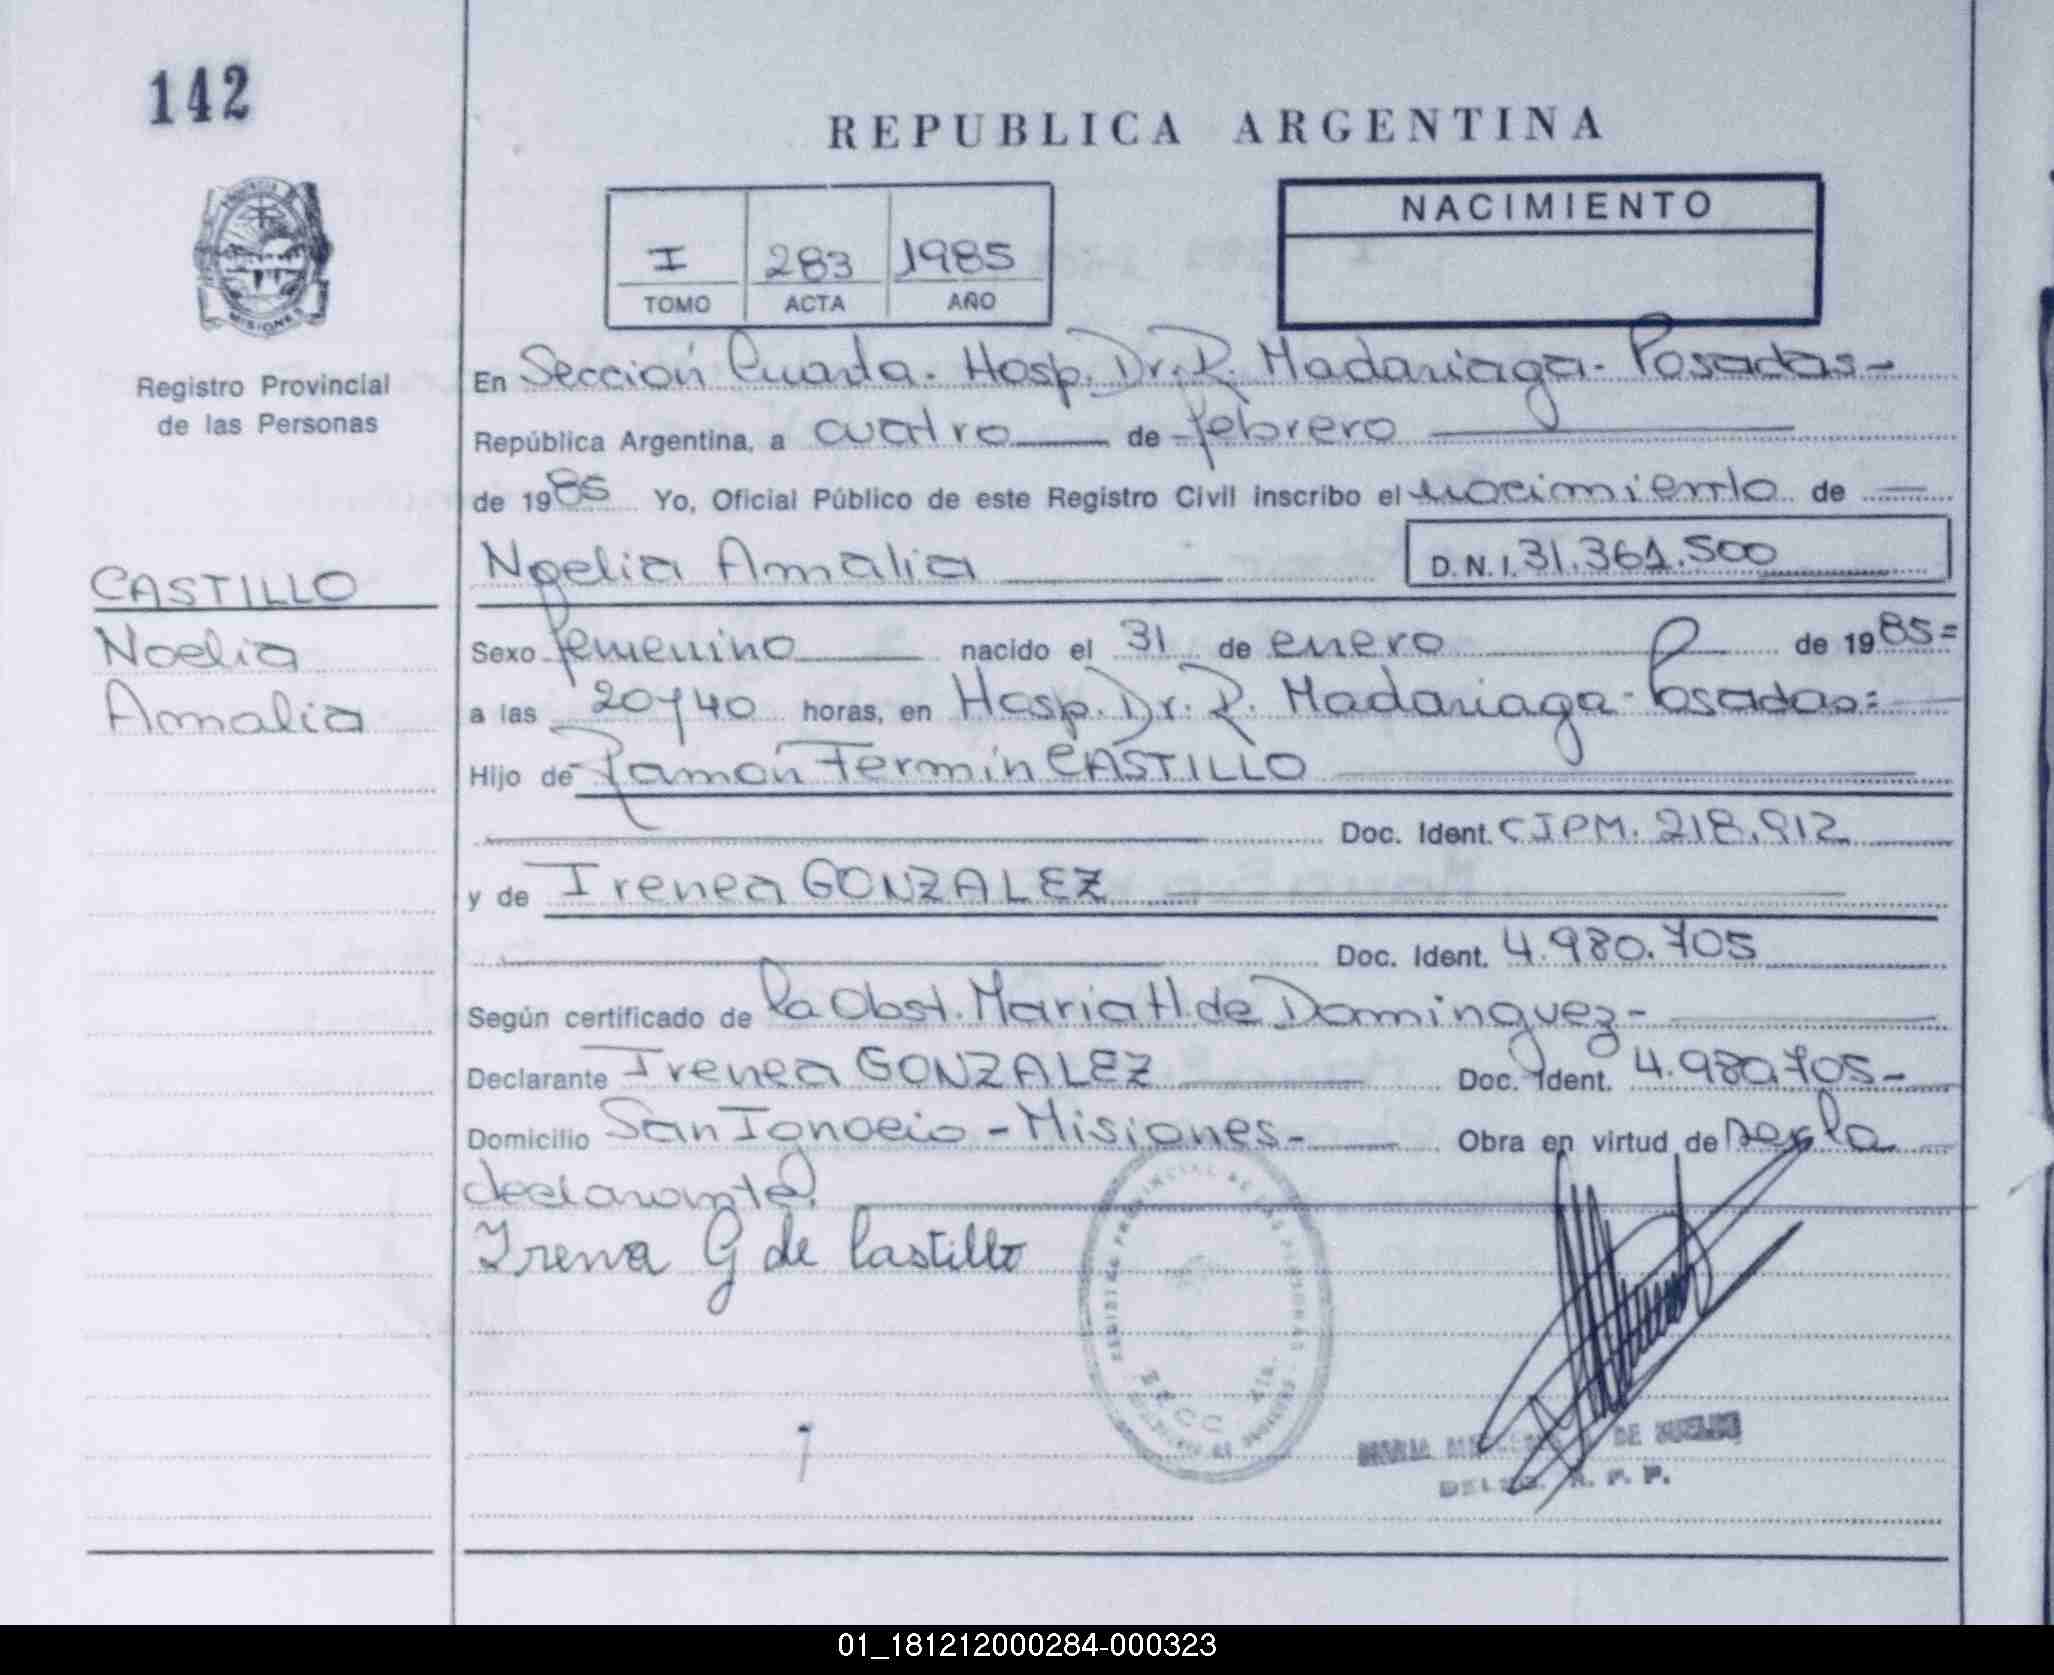 142
REPUBLICA ARGENTINA
PROVINCIA DE
MISIONES
Registro Provincial
de las Personas
I 283 1985
TOMO ACTA AÑO
NACIMIENTO
En Sección Cuarta. Hosp. Dr. R. Madariaga - Posadas -
República Argentina, a cuatro de febrero
de 1985 Yo, Oficial Público de este Registro Civil inscribo el nacimiento de
Noelia Amalia D.N.I. 31.361.500
CASTILLO
Noelia
Amalia
Sexo femenino nacido el 31 de enero de 1985=
a las 20 y 40 horas, en Hosp. Dr. R. Madariaga - Posadas=
Hijo de Ramón Fermin CASTILLO
Doc. Ident. CIPM. 218.912
y de Irenea GONZALEZ
Doc. Ident. 4.980.705
Según certificado de la Obst. Maria H. de Dominguez -
Declarante Irenea GONZALEZ Doc. Ident. 4.980.705 -
Domicilio San Ignacio - Misiones - Obra en virtud de ser la
declarante.
Irena G de Castillo
SECC. 4ta.
MARIA DE
DELEG. R. P. P.
01_181212000284-000323